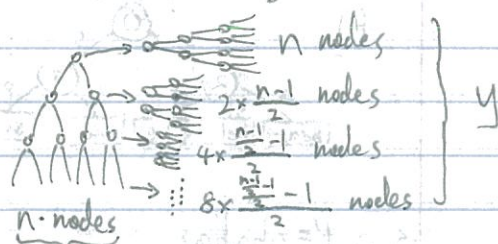 n nodes
2 × \frac{n-1}{2} nodes
4 × \frac{\frac{n-1}{2}-1}{2} nodes
8 × \frac{\frac{\frac{n-1}{2}-1}{2}-1}{2} nodes
y
n nodes